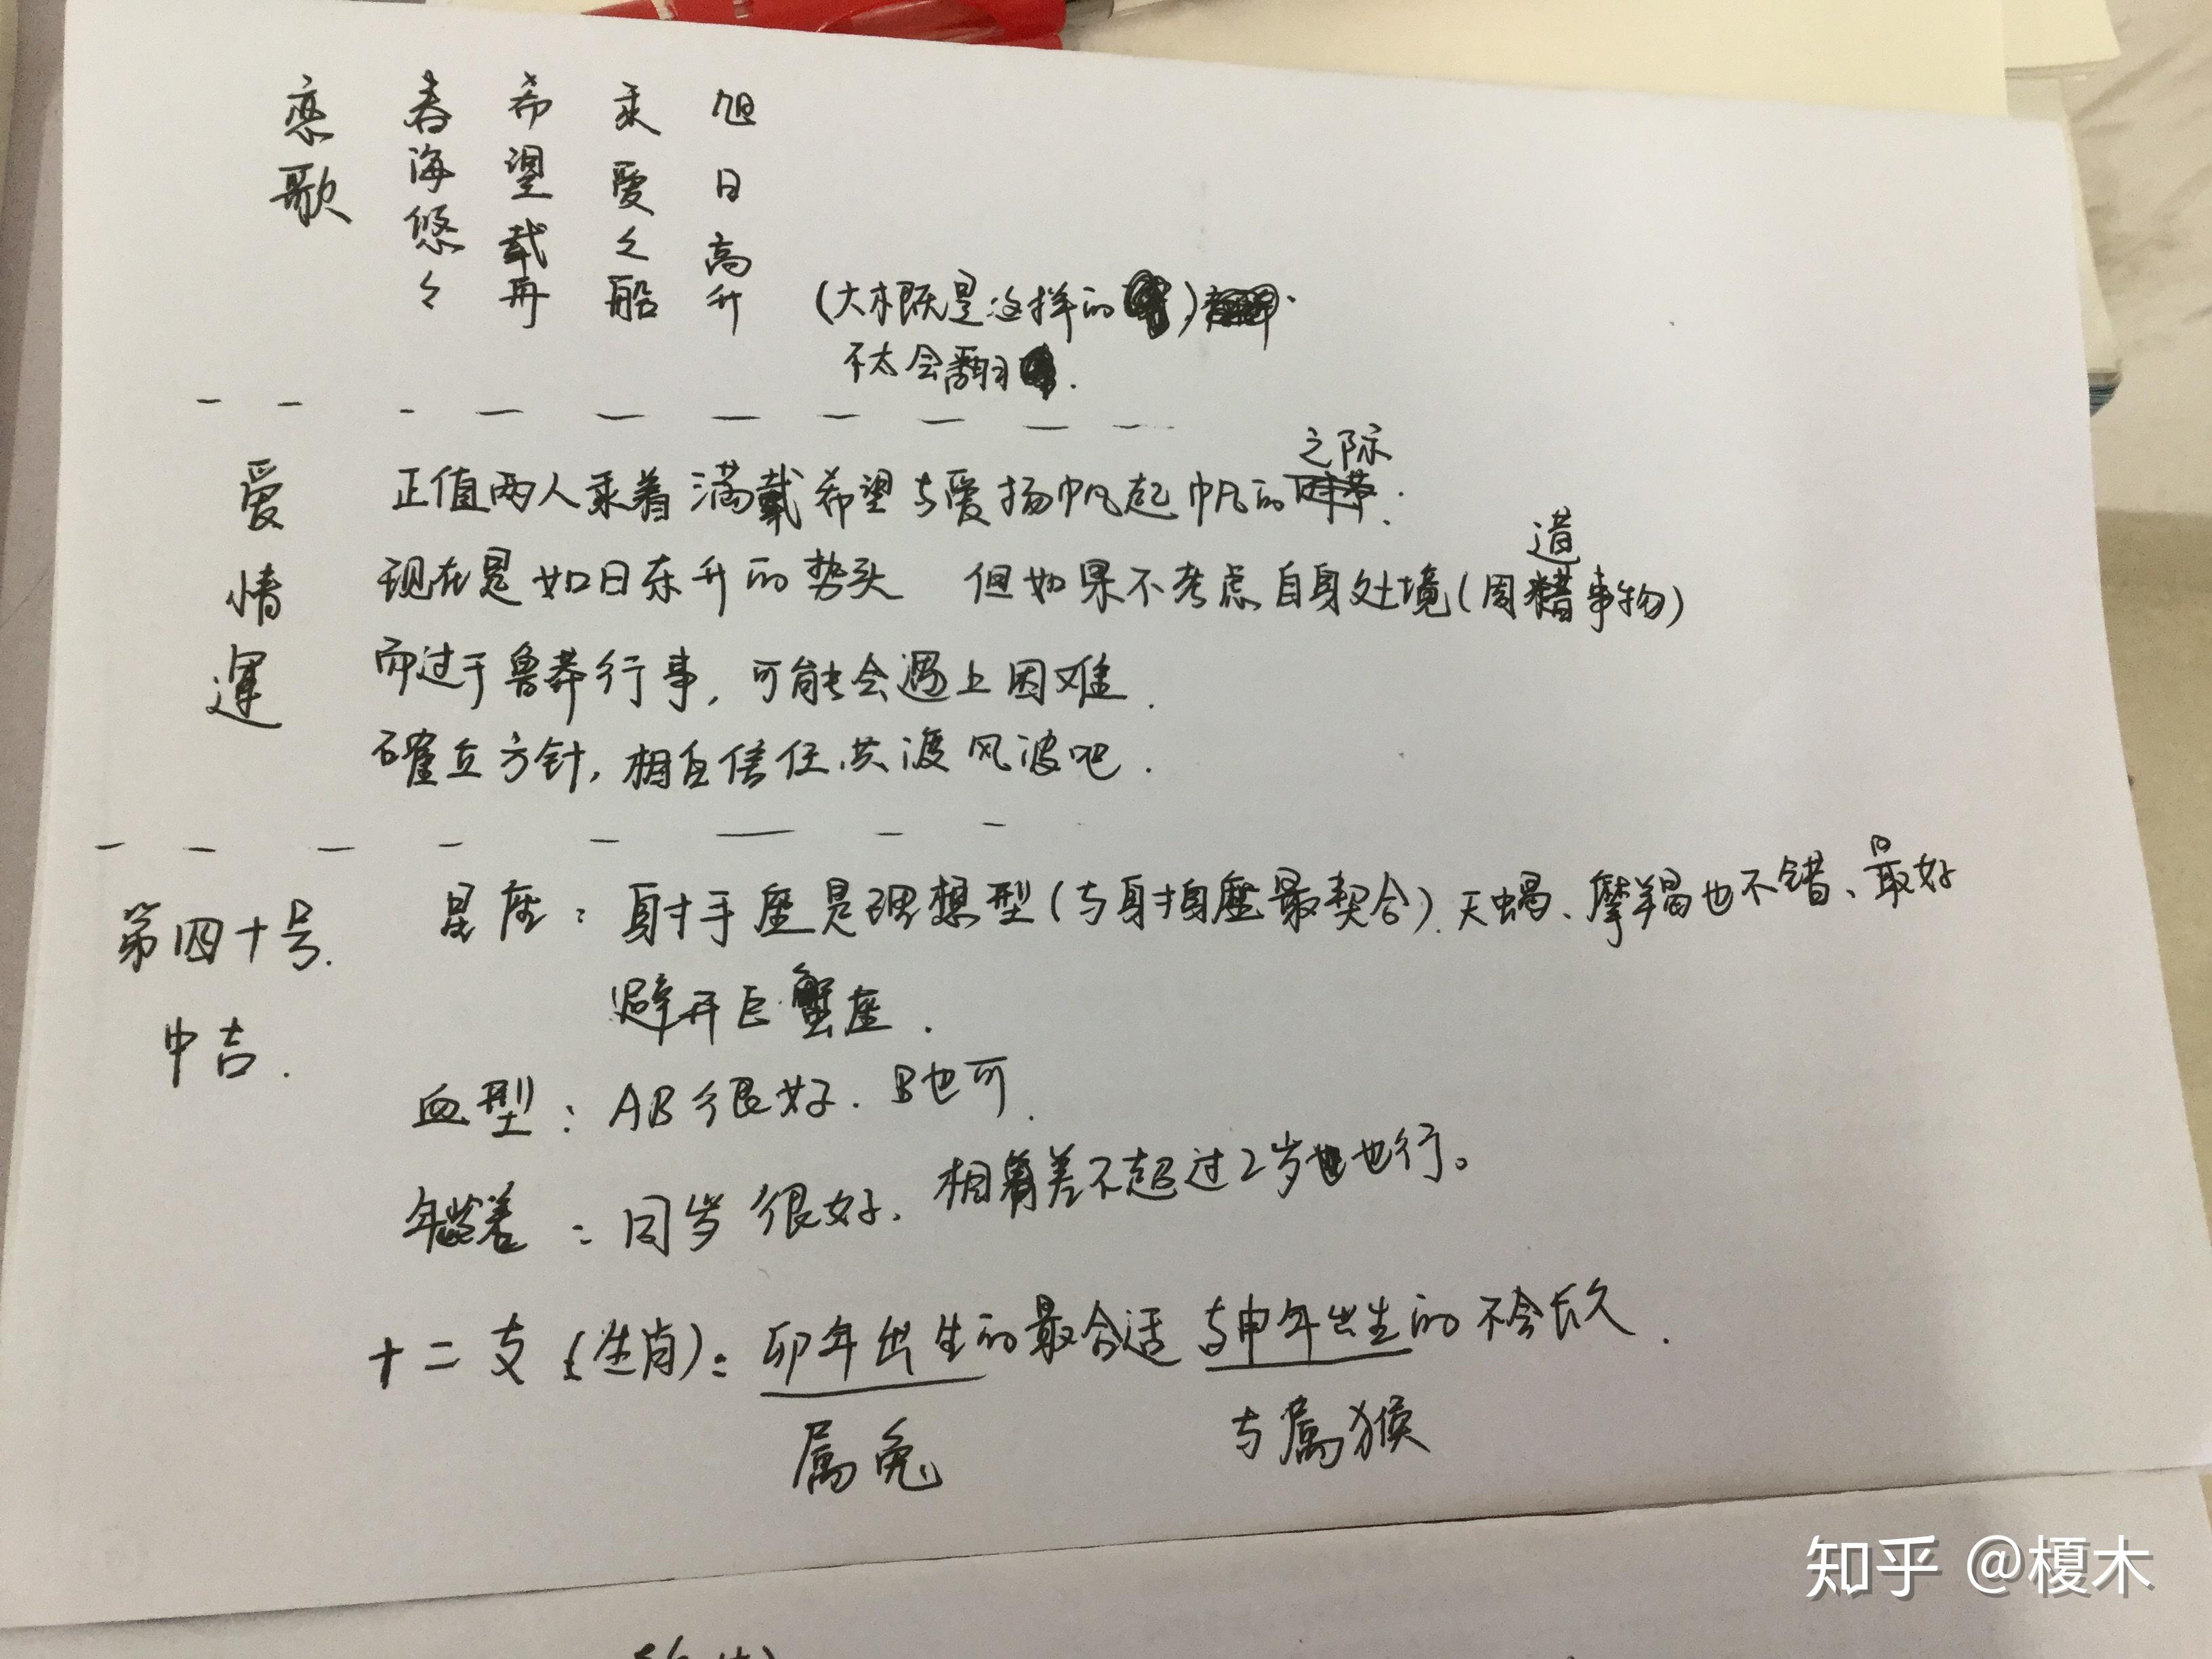 恋歌
春海悠々
希望载再
乘爱之船
旭日高升
(大概是这样的)
不太会翻.
爱情運
正值两人乘着满戴希望与爱扬帆起帆的之际.
现在是如日东升的势头 但如果不考虑自身处境(周遭事物)
而过于鲁莽行事,可能会遇上困难.
確立方针,相互信任,共渡风波吧.
第四十号.
中吉.
星座:射手座是理想型(与射手座最契合).天蝎、摩羯也不错、最好
避开巨蟹座.
血型:AB很好.B也可.
年龄差:同岁很好.相差不超过2岁也行。
十二支(生肖):卯年出生的最合适 与申年出生的不会长久.
属兔
与属猴
知乎 @榎木